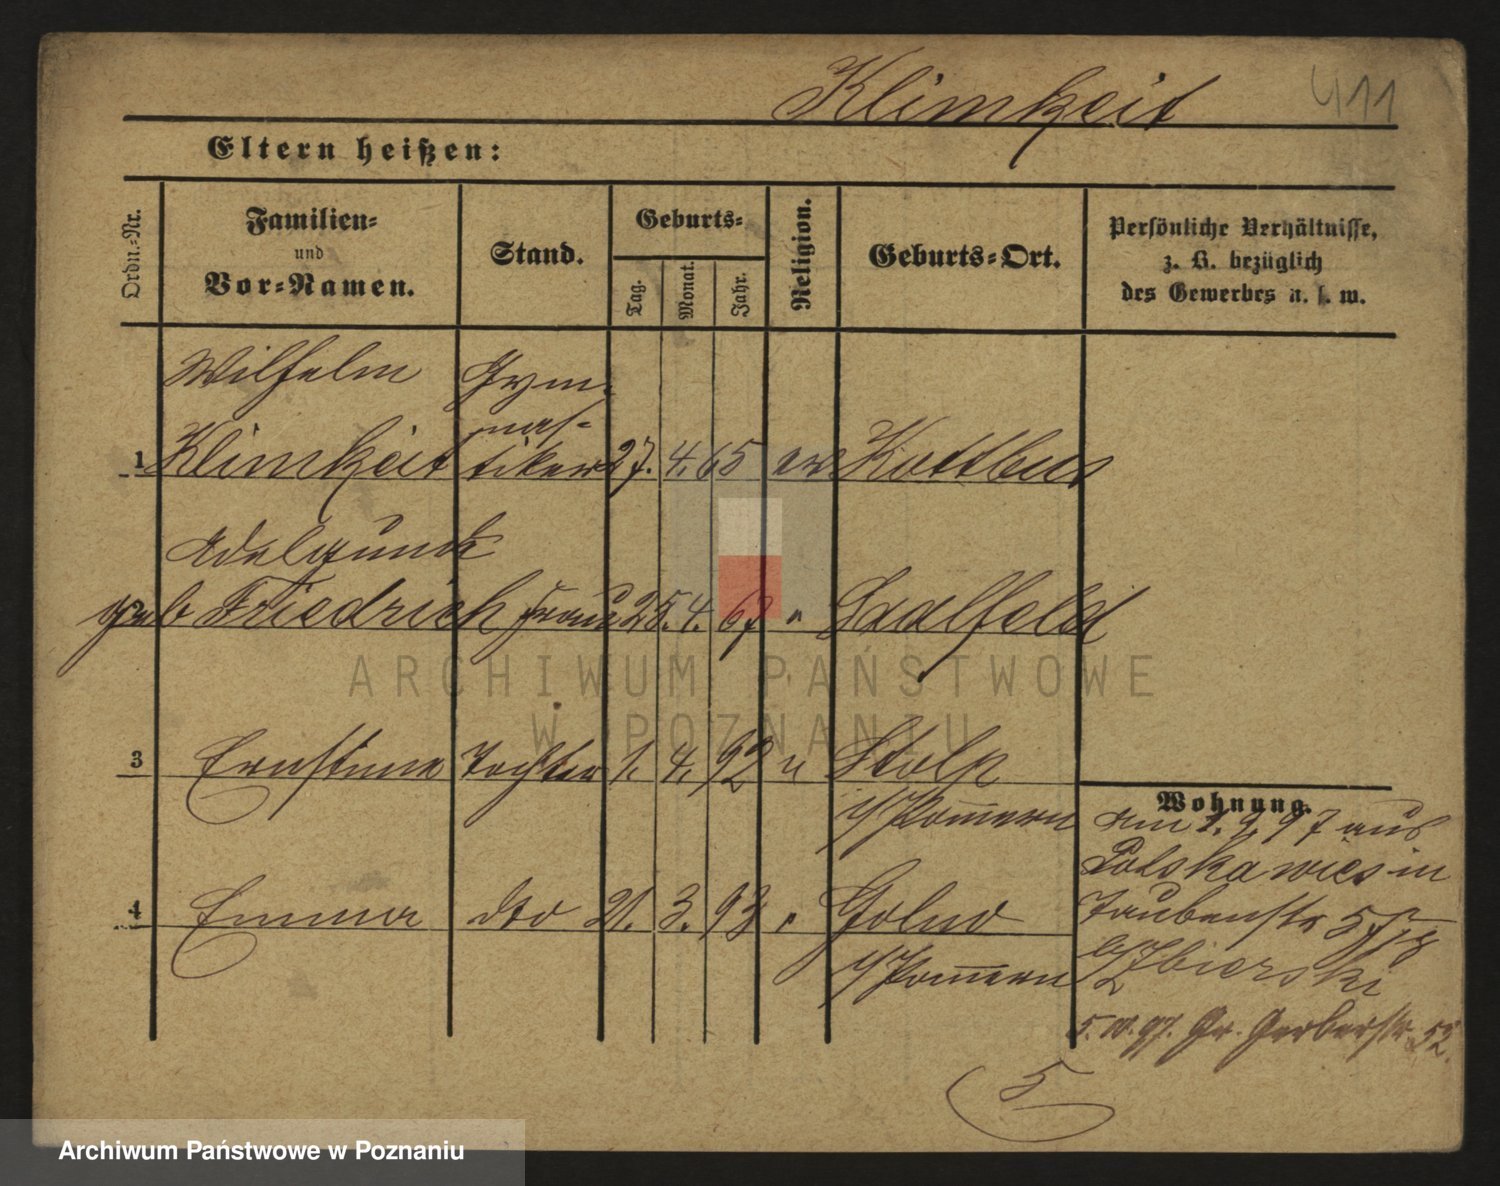 Klimkeit 411
Eltern heißen:
Ordn.=Nr.
Familien=
und
Vor=Namen.
Stand.
Geburts=
Tag.
Monat.
Jahr.
Religion.
Geburts=Ort.
Persönliche Verhältnisse,
z. B. bezüglich
des Gewerbes u. s. w.
Wilhelm Gym=
nas=
1 Klimkeit tiker 27. 4. 65 ev Kottbus
Adelgunde
2 geb Friedrich Frau 25. 4. 67 " Saalfeld
3 Ernstine Tochter 1. 4. 92 " Stolp
i/Pommern
4 Emma dto 21. 3. 93 " Golnow
i/Pommern
Wohnung.
am 1. 9. 97 aus
Polskawies in
Taubenstr 5
b/Zbierski
5. 10. 97. Gr. Gerberstr. 52.
5
ARCHIWUM PAŃSTWOWE
W POZNANIU
Archiwum Państwowe w Poznaniu